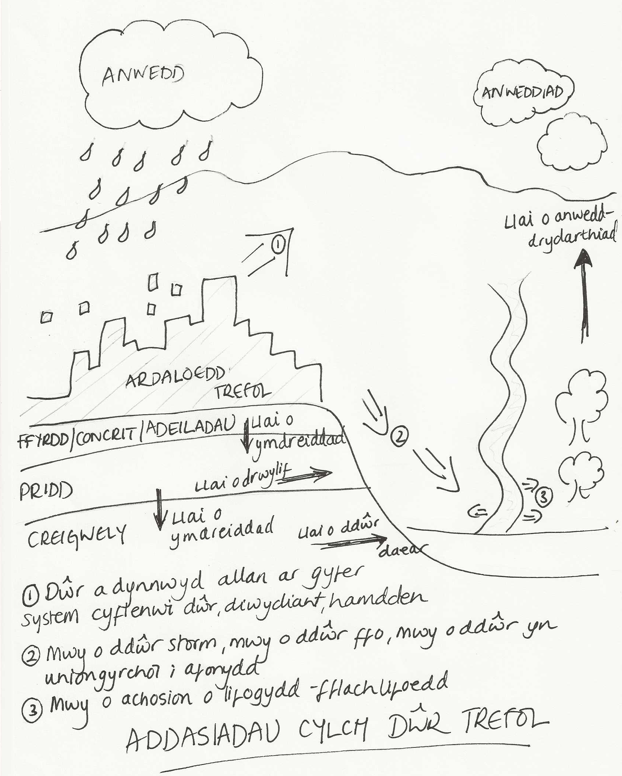 ANWEDD
ANWEDDIAD
Llai o anwedd-
drydarthiad
1
ARDALOEDD
TREFOL
FFYRDD/CONCRIT/ADEILADAU
Llai o
ymdreiddad
2
Llai o drwylif
PRIDD
3
Llai o
ymdreiddad
CREIGWELY
Llai o ddŵr
daear
1 Dŵr a dynnwyd allan ar gyfer
system cyflenwi dŵr, diwydiant, hamdden
2 Mwy o ddŵr storm, mwy o ddŵr ffo, mwy o ddŵr yn
uniongyrchol i afonydd
3 Mwy o achosion o lifogydd - fflachlifoedd
ADDASIADAU CYLCH DŴR TREFOL